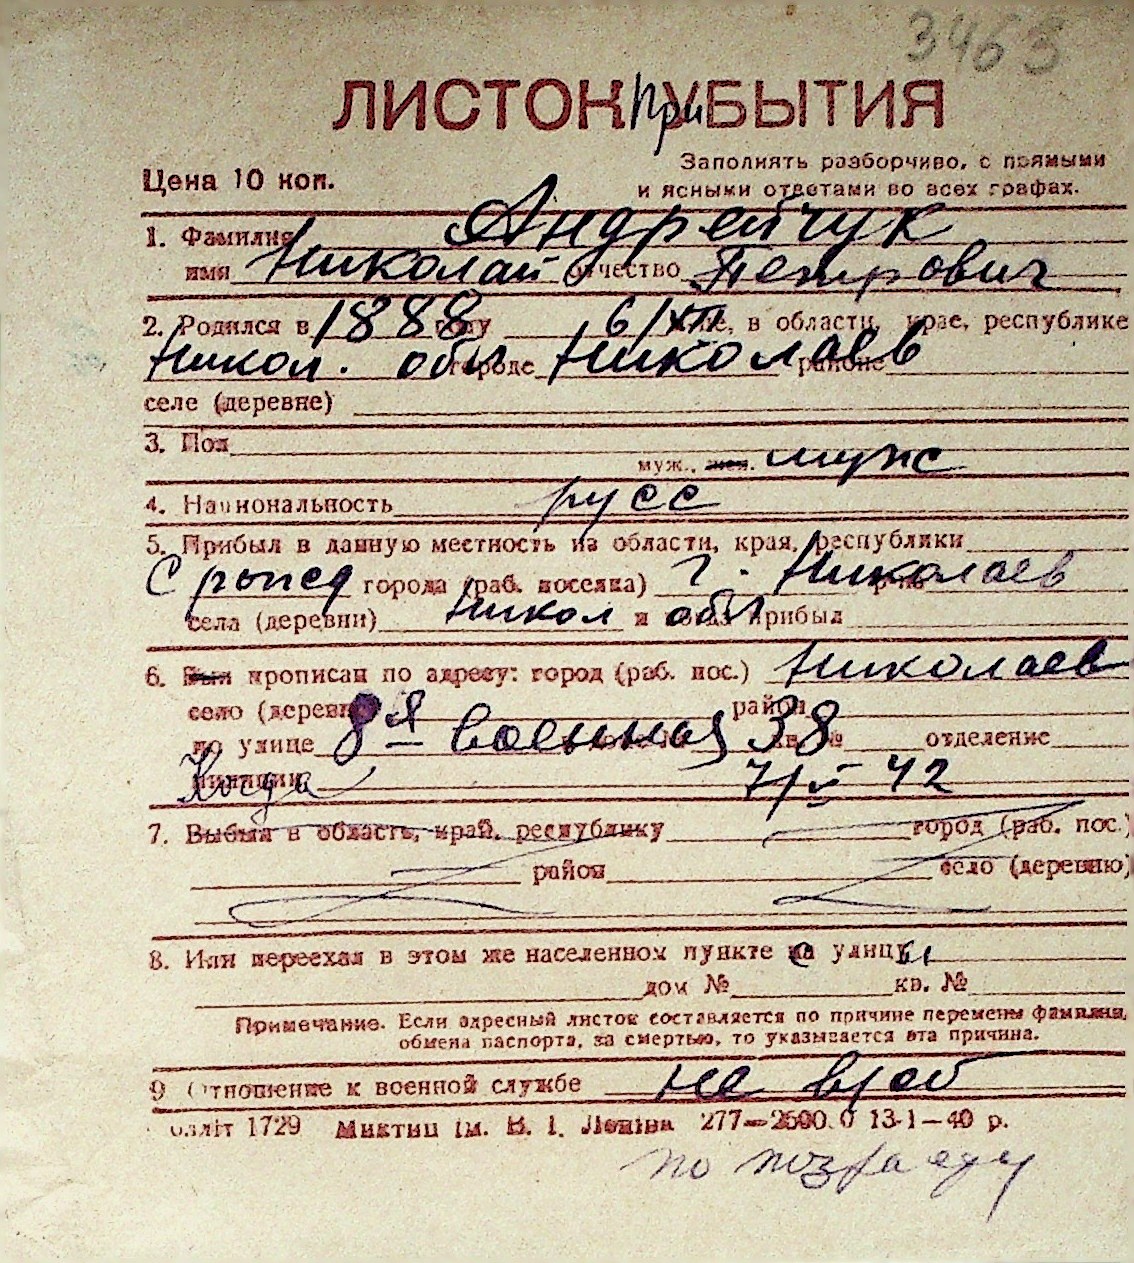 3463
ЛИСТОК при УБЫТИЯ
Заполнять разборчиво, с прямыми
Цена 10 коп.
и ясными ответами во всех графах.
1. Фамилия Андрейчук
имя Николай отчество Петрович
2. Родился в 1888 году 6/XII в области, крае, республике
Никол. обл городе Николаев районе
селе (деревне)
3. Пол
муж., жен. муж
4. Национальность русс
5. Прибыл в данную местность из области, края, республики
С рожд города (раб. поселка) г. Николаев
села (деревни) Никол и обл прибыл
6. Был прописан по адресу: город (раб. пос.) Николаев
село (деревня) район
по улице 8я военная 38 кв. № отделение
милиции Когда 7/V 42
7. Выбыл в область, край, республику город (раб. пос.)
район село (деревню)
8. Или переехал в этом же населенном пункте с улицы
дом № кв. №
Примечание. Если адресный листок составляется по причине перемены фамилии,
обмена паспорта, за смертью, то указывается эта причина.
9 Отношение к военной службе не вроб
Облліт 1729 Миктип ім. В. І. Леніна 277—2500.0 13-1—40 р.
по